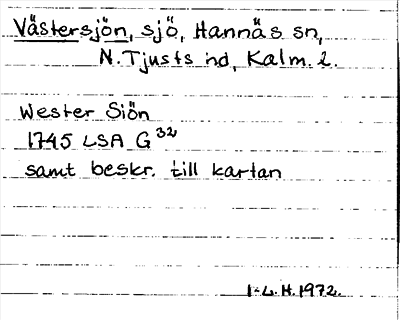 Västersjön, sjö, Hannäs sn,
N. Tjusts hd, Kalm. l.
Wester Siön
1745 LSA G 32
samt beskr. till kartan
I. L. H. 1972.